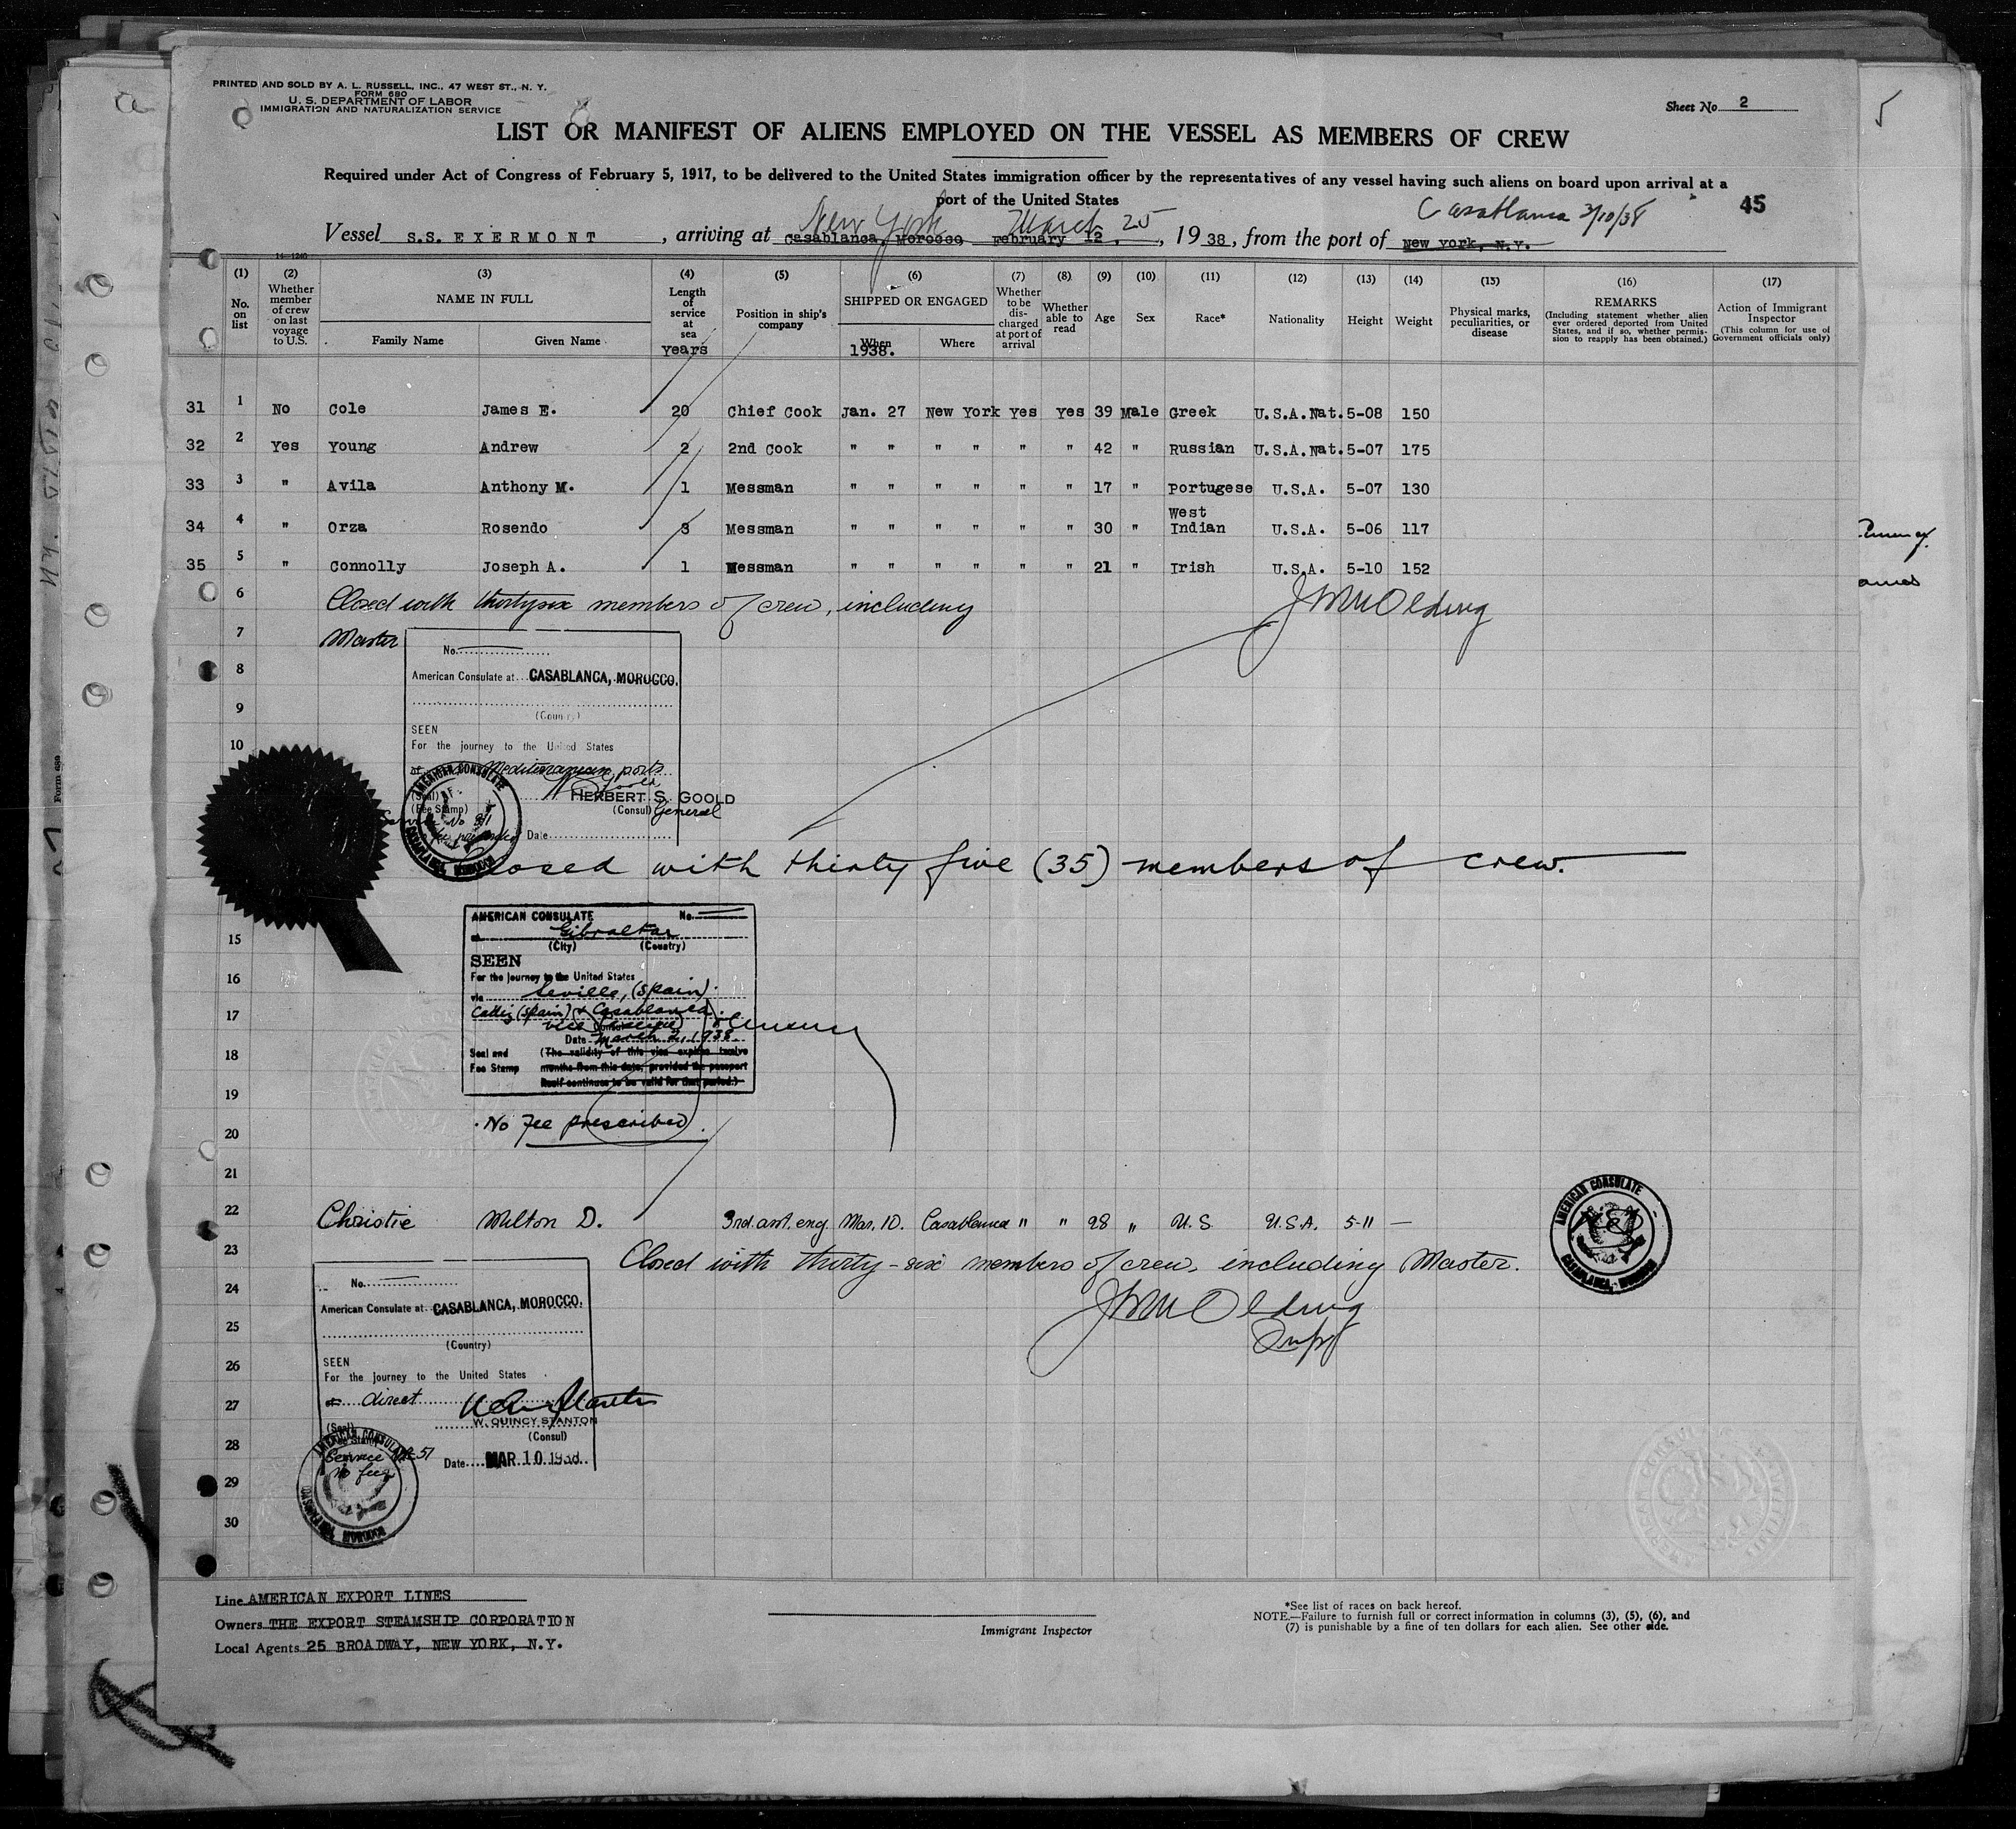 PRINTED AND SOLD BY A. L. RUSSELL, INC., 47 WEST ST., N. Y.
FORM 680
U. S. DEPARTMENT OF LABOR
IMMIGRATION AND NATURALIZATION SERVICE
Sheet No. 2
LIST OR MANIFEST OF ALIENS EMPLOYED ON THE VESSEL AS MEMBERS OF CREW
Required under Act of Congress of February 5, 1917, to be delivered to the United States immigration officer by the representatives of any vessel having such aliens on board upon arrival at a
port of the United States
45
New York March 25 Casablanca 3/10/38
Vessel S.S. EXERMONT, arriving at Casablanca, Morocco February 12, 1938, from the port of New York, N.Y.
14-1240
(1) (2) (3) (4) (5) (6) (7) (8) (9) (10) (11) (12) (13) (14) (15) (16) (17)
No. on list
Whether member of crew on last voyage to U.S.
NAME IN FULL
Family Name Given Name
Length of service at sea
Years
Position in ship's company
SHIPPED OR ENGAGED
When Where
1938.
Whether to be discharged at port of arrival
Whether able to read
Age
Sex
Race*
Nationality
Height
Weight
Physical marks, peculiarities, or disease
REMARKS
(Including statement whether alien ever ordered deported from United States, and if so, whether permission to reapply has been obtained.)
Action of Immigrant Inspector
(This column for use of Government officials only)
31 1 No Cole James E. 20 Chief Cook Jan. 27 New York Yes Yes 39 Male Greek U.S.A.Nat. 5-08 150
32 2 Yes Young Andrew 2 2nd Cook " " " " " " 42 " Russian U.S.A.Nat. 5-07 175
33 3 " Avila Anthony M. 1 Messman " " " " " " 17 " Portugese U.S.A. 5-07 130
34 4 " Orza Rosendo 3 Messman " " " " " " 30 " West Indian U.S.A. 5-06 117
35 5 " Connolly Joseph A. 1 Messman " " " " " " 21 " Irish U.S.A. 5-10 152
6 Closed with thirtysix members of crew, including
7 Master
8
9
10
No.
American Consulate at CASABLANCA, MOROCCO.
(Country)
SEEN
For the journey to the United States
Mediterranean ports
(Seal)
(Fee Stamp)
HERBERT S. GOOLD
(Consul) General
Date
AMERICAN CONSULATE
CASABLANCA, MOROCCO
Closed with thirty five (35) members of crew.
15
16
17
18
19
20
21
AMERICAN CONSULATE No.
Gibraltar
(City) (Country)
SEEN
For the journey to the United States
via Seville, (Spain).
Cadiz (Spain) & Casablanca
Date March 2, 1938
Seal and Fee Stamp
(The validity of this visa expires twelve
months from this date, provided the passport
itself continues to be valid for that period.)
No Fee prescribed.
22 Christie Milton D. 3rd. asst. eng. Mar. 10. Casablanca " " 28 " U.S. U.S.A. 5-11 —
23 Closed with thirty-six members of crew, including Master.
24
25
26
27
28
29
30
AMERICAN CONSULATE
CASABLANCA, MOROCCO
No.
American Consulate at CASABLANCA, MOROCCO.
(Country)
SEEN
For the journey to the United States
direct
(Seal)
W. QUINCY STANTON
(Consul)
Service No 51
No fee
Date MAR 10 1938
AMERICAN CONSULATE
CASABLANCA, MOROCCO
Line AMERICAN EXPORT LINES
Owners THE EXPORT STEAMSHIP CORPORATION
Local Agents 25 BROADWAY, NEW YORK, N.Y.
Immigrant Inspector
*See list of races on back hereof.
NOTE.—Failure to furnish full or correct information in columns (3), (5), (6), and
(7) is punishable by a fine of ten dollars for each alien. See other side.
Form 680